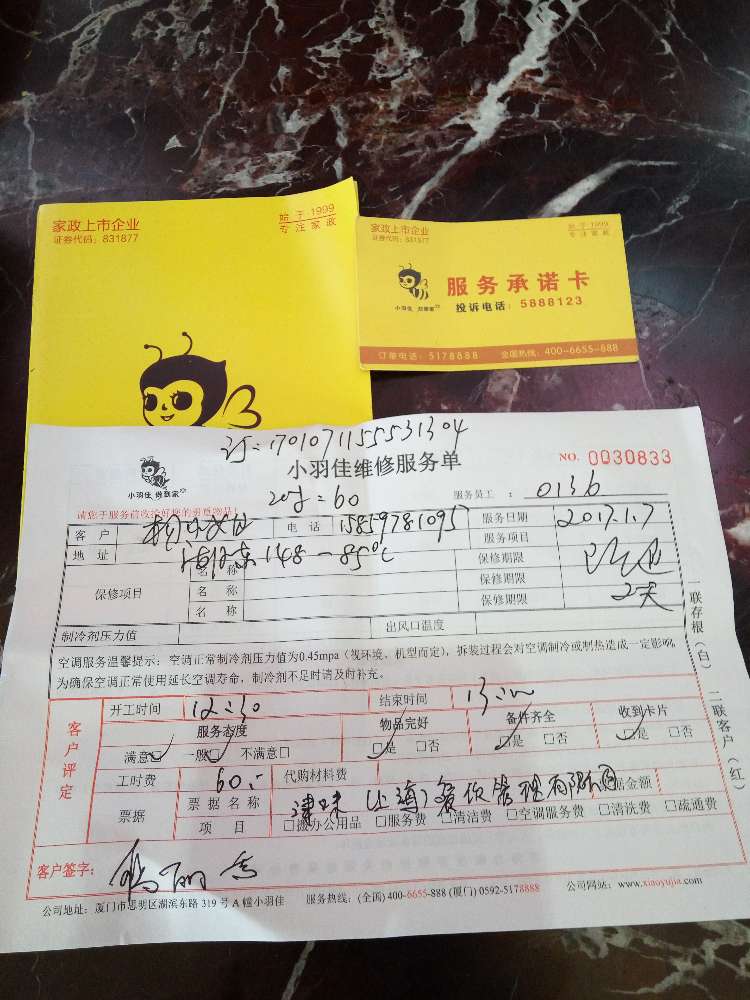 家政上市企业
证券代码：831877
始于·1999
专注家政
家政上市企业
证券代码：831877
始于·1999
专注家政
服务承诺卡
小羽佳 做到家
投诉电话：5888123
订单电话：5178888 全国热线：400-6655-888
订：17010711555531304
小羽佳维修服务单
NO. 0030833
小羽佳 做到家
20寸=60
服务员工：0136
请您于服务前收拾好您的贵重物品！
客户 电话 15859781095 服务日期 2017.1.7
地址 148-85℃ 服务项目
保修项目 名称 保修期限
名称 保修期限
名称 保修期限 2天
制冷剂压力值 出风口温度
空调服务温馨提示：空调正常制冷剂压力值为0.45mpa（视环境、机型而定），拆装过程会对空调制冷或制热造成一定影响，
为确保空调正常使用延长空调寿命，制冷剂不足时请及时补充。
一联存根（白） 二联客户（红）
客户评定
开工时间 12:30 结束时间 13:00
服务态度 物品完好 备件齐全 收到卡片
满意□ 一般□ 不满意□ □是 □否 □是 □否 □是 □否
工时费 60.- 代购材料费
票据 票据名称 津味（上海）餐饮管理有限公司 金额
项目 □搬办公用品 □服务费 □清洁费 □空调服务费 □清洗费 □疏通费
客户签字：
公司地址：厦门市思明区湖滨东路319号A幢小羽佳 服务热线：(全国) 400-6655-888 (厦门) 0592-5178888 公司网站：www.xiaoyujia.com